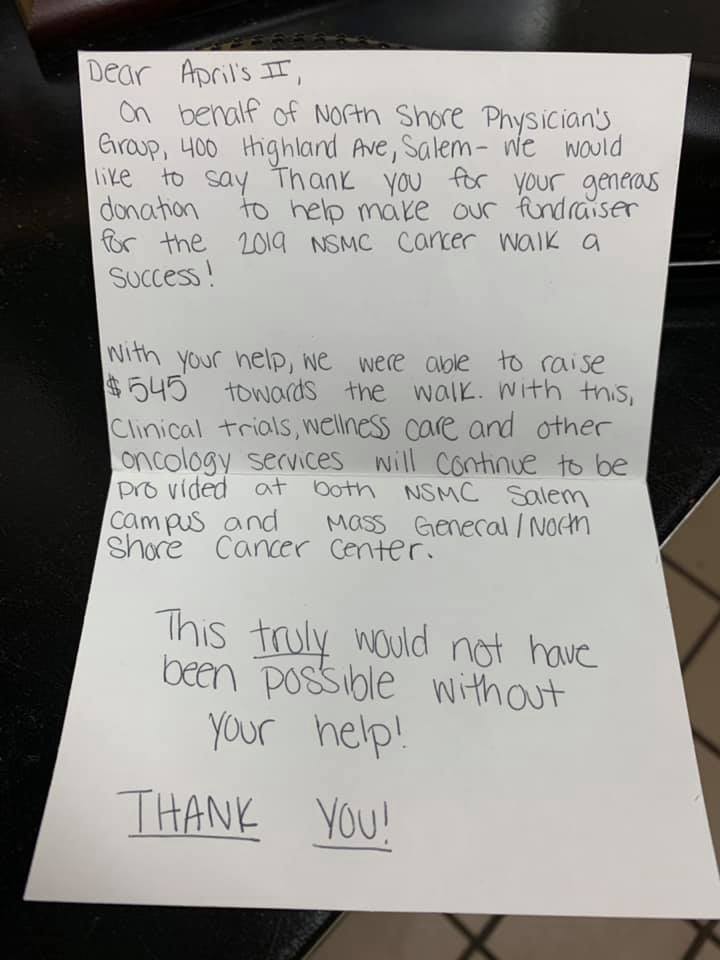 Dear April's II,
On behalf of North Shore Physician's
Group, 400 Highland Ave, Salem- We would
like to say Thank you for your generous
donation to help make our fundraiser
for the 2019 NSMC Cancer walk a
success!
With your help, we were able to raise
$545 towards the walk. With this,
Clinical trials, wellness care and other
oncology services will continue to be
provided at both NSMC Salem
campus and Mass General/North
Shore Cancer Center.
This truly would not have
been possible without
your help!
THANK YOU!